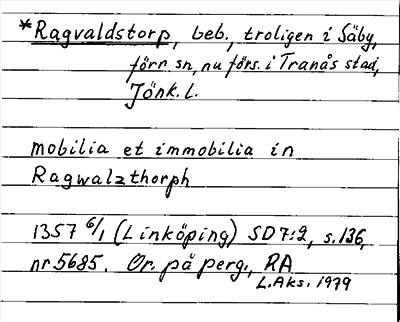 *Ragvaldstorp, beb., troligen i Säby,
förr sn, nu förs. i Tranås stad,
Jönk. L.
mobilia et immobilia in
Ragwalzthorph
1357 6/1 (Linköping) SD 7:2, s. 136,
nr 5685. Or. på perg., RA
L.Aks. 1979